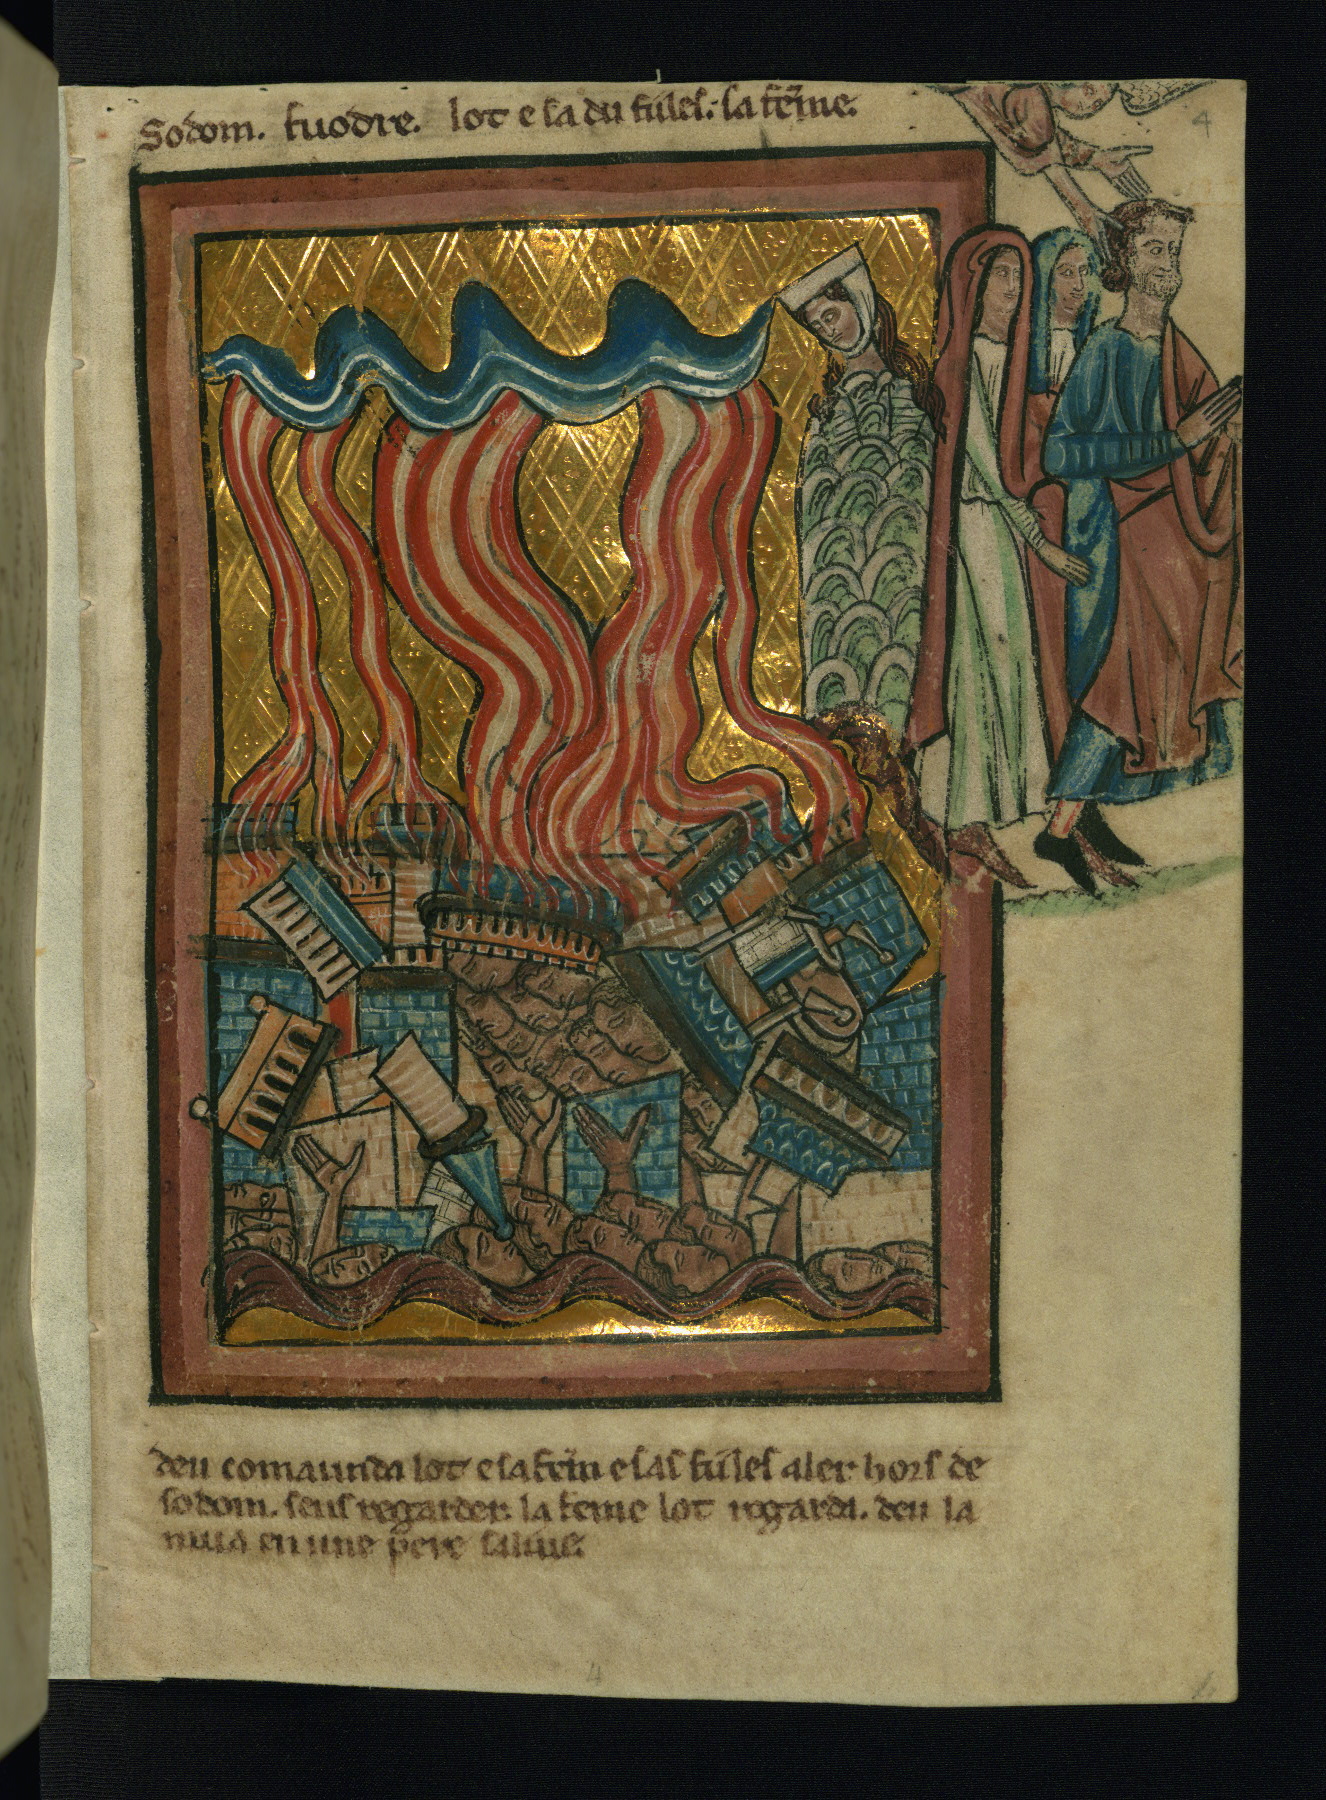 Sodom. fuodre. lot e sa du fules: sa feme.
4
deu comaunda lot e sa fem e sas fules aler hors de
sodom. sens regarder. la feme lot regarda. deu la
mua en une pere salue.
4